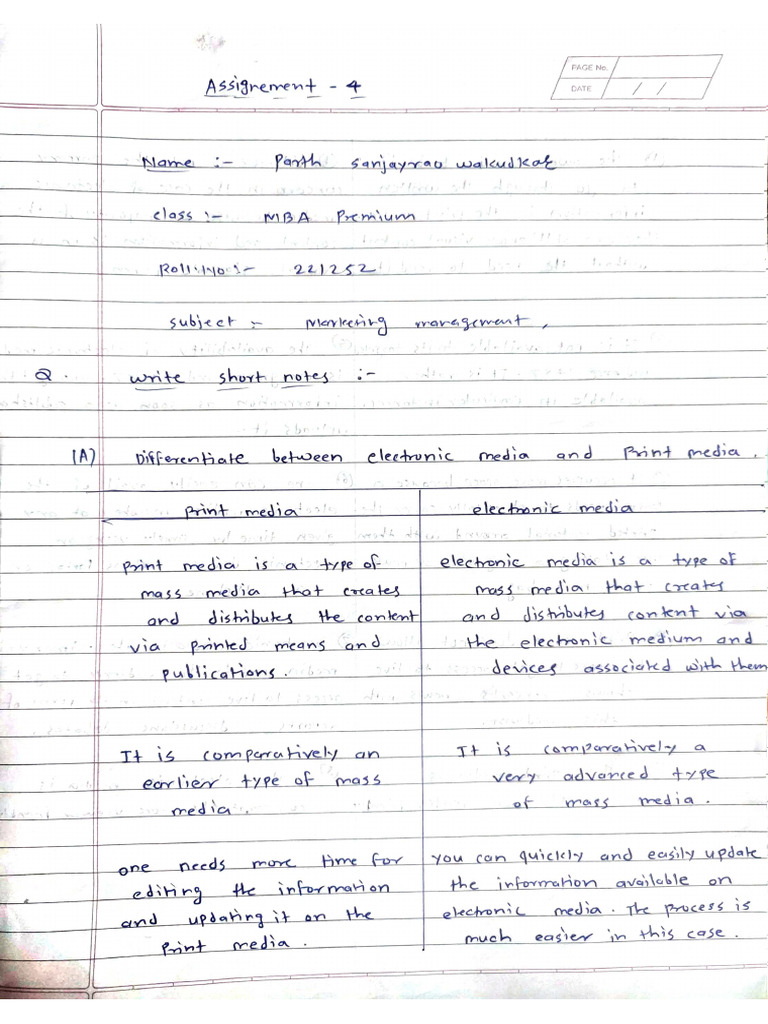 PAGE No.
DATE / /
Assignement - 4
Name :- Parth Sanjayrao Wakudkar
class :- MBA Premium
Roll. No. :- 221252
Subject :- Marketing management,
Q. write short notes :-
(A) Differentiate between electronic media and Print media.
Print media
Print media is a type of
mass media that creates
and distributes the content
via printed means and
publications.
It is comparatively an
earlier type of mass
media.
one needs more time for
editing the information
and updating it on the
Print media.
electronic media
electronic media is a type of
mass media that creates
and distributes content via
the electronic medium and
devices associated with them
It is comparatively a
very advanced type
of mass media.
you can quickly and easily update
the information available on
electronic media. The process is
much easier in this case.